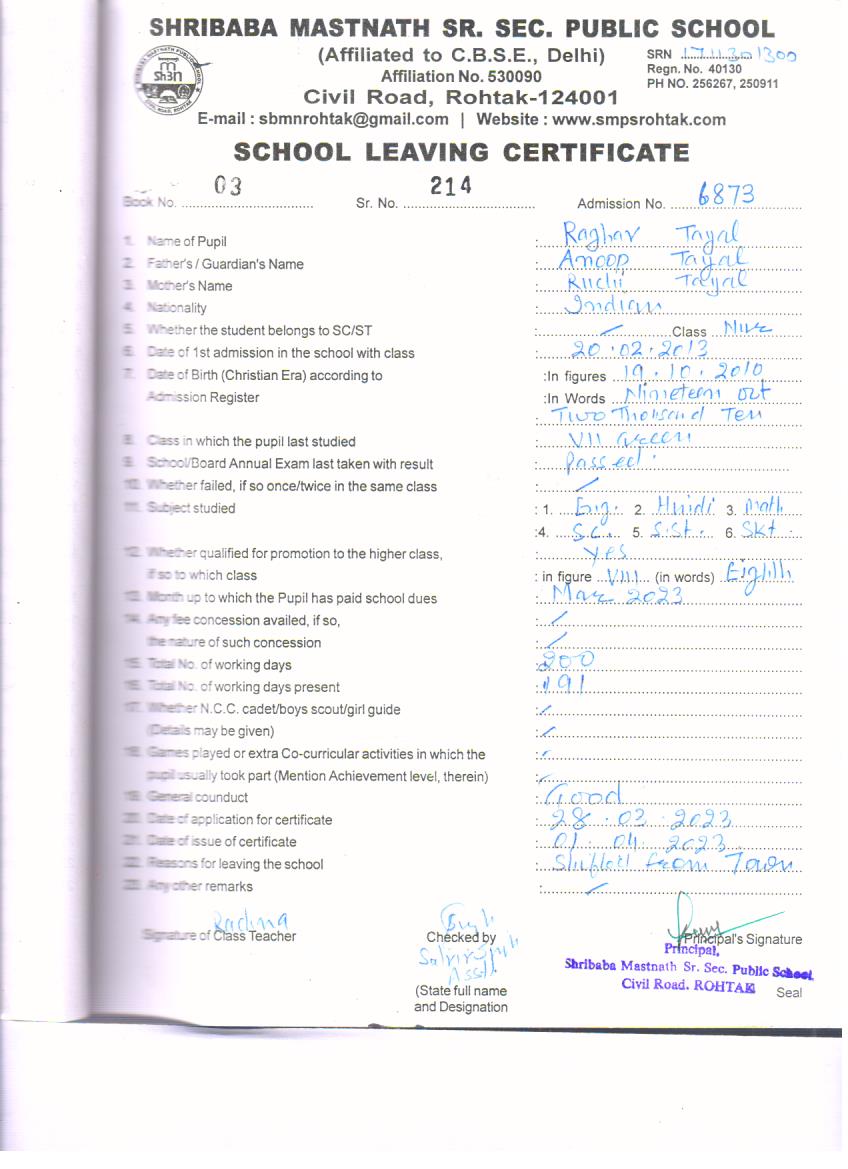 SHRIBABA MASTNATH SR. SEC. PUBLIC SCHOOL
(Affiliated to C.B.S.E., Delhi)
SRN 1711301300
Affiliation No. 530090
Regn. No. 40130
Civil Road, Rohtak-124001
PH NO. 256267, 250911
E-mail : sbmnrohtak@gmail.com | Website : www.smpsrohtak.com
SCHOOL LEAVING CERTIFICATE
Book No. 03 Sr. No. 214 Admission No. 6873
1. Name of Pupil : Raghav Tayal
2. Father's / Guardian's Name : Anoop Tayal
3. Mother's Name : Ruchi Tayal
4. Nationality : Indian
5. Whether the student belongs to SC/ST : / Class Nur
6. Date of 1st admission in the school with class : 20.02.2013
7. Date of Birth (Christian Era) according to :In figures 19.10.2010
Admission Register :In Words Nineteen oct
Two Thousand Ten
8. Class in which the pupil last studied : VII Green
9. School/Board Annual Exam last taken with result : Passed
10. Whether failed, if so once/twice in the same class : /
11. Subject studied : 1. Eng. 2. Hindi 3. Math
:4. S.C. 5. S.St. 6. Skt
12. Whether qualified for promotion to the higher class, : yes
if so to which class : in figure VIII (in words) Eighth
13. Month up to which the Pupil has paid school dues : Mar 2023
14. Any fee concession availed, if so, : /
the nature of such concession : /
15. Total No. of working days : 200
16. Total No. of working days present : 191
17. Whether N.C.C. cadet/boys scout/girl guide : /
(Details may be given) : /
18. Games played or extra Co-curricular activities in which the : /
pupil usually took part (Mention Achievement level, therein) : /
19. General counduct : Good
20. Date of application for certificate : 28.02.2023
21. Date of issue of certificate : 01.04.2023
22. Reasons for leaving the school : Shifted from Town
23. Any other remarks : /
Signature of Class Teacher
Checked by
Principal's Signature
Principal,
Shribaba Mastnath Sr. Sec. Public School
Civil Road, ROHTAK
Seal
(State full name
and Designation